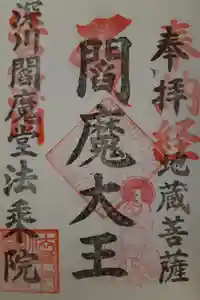 奉拝
地蔵菩薩
閻魔大王
深川閻魔堂法乗院
奉納経